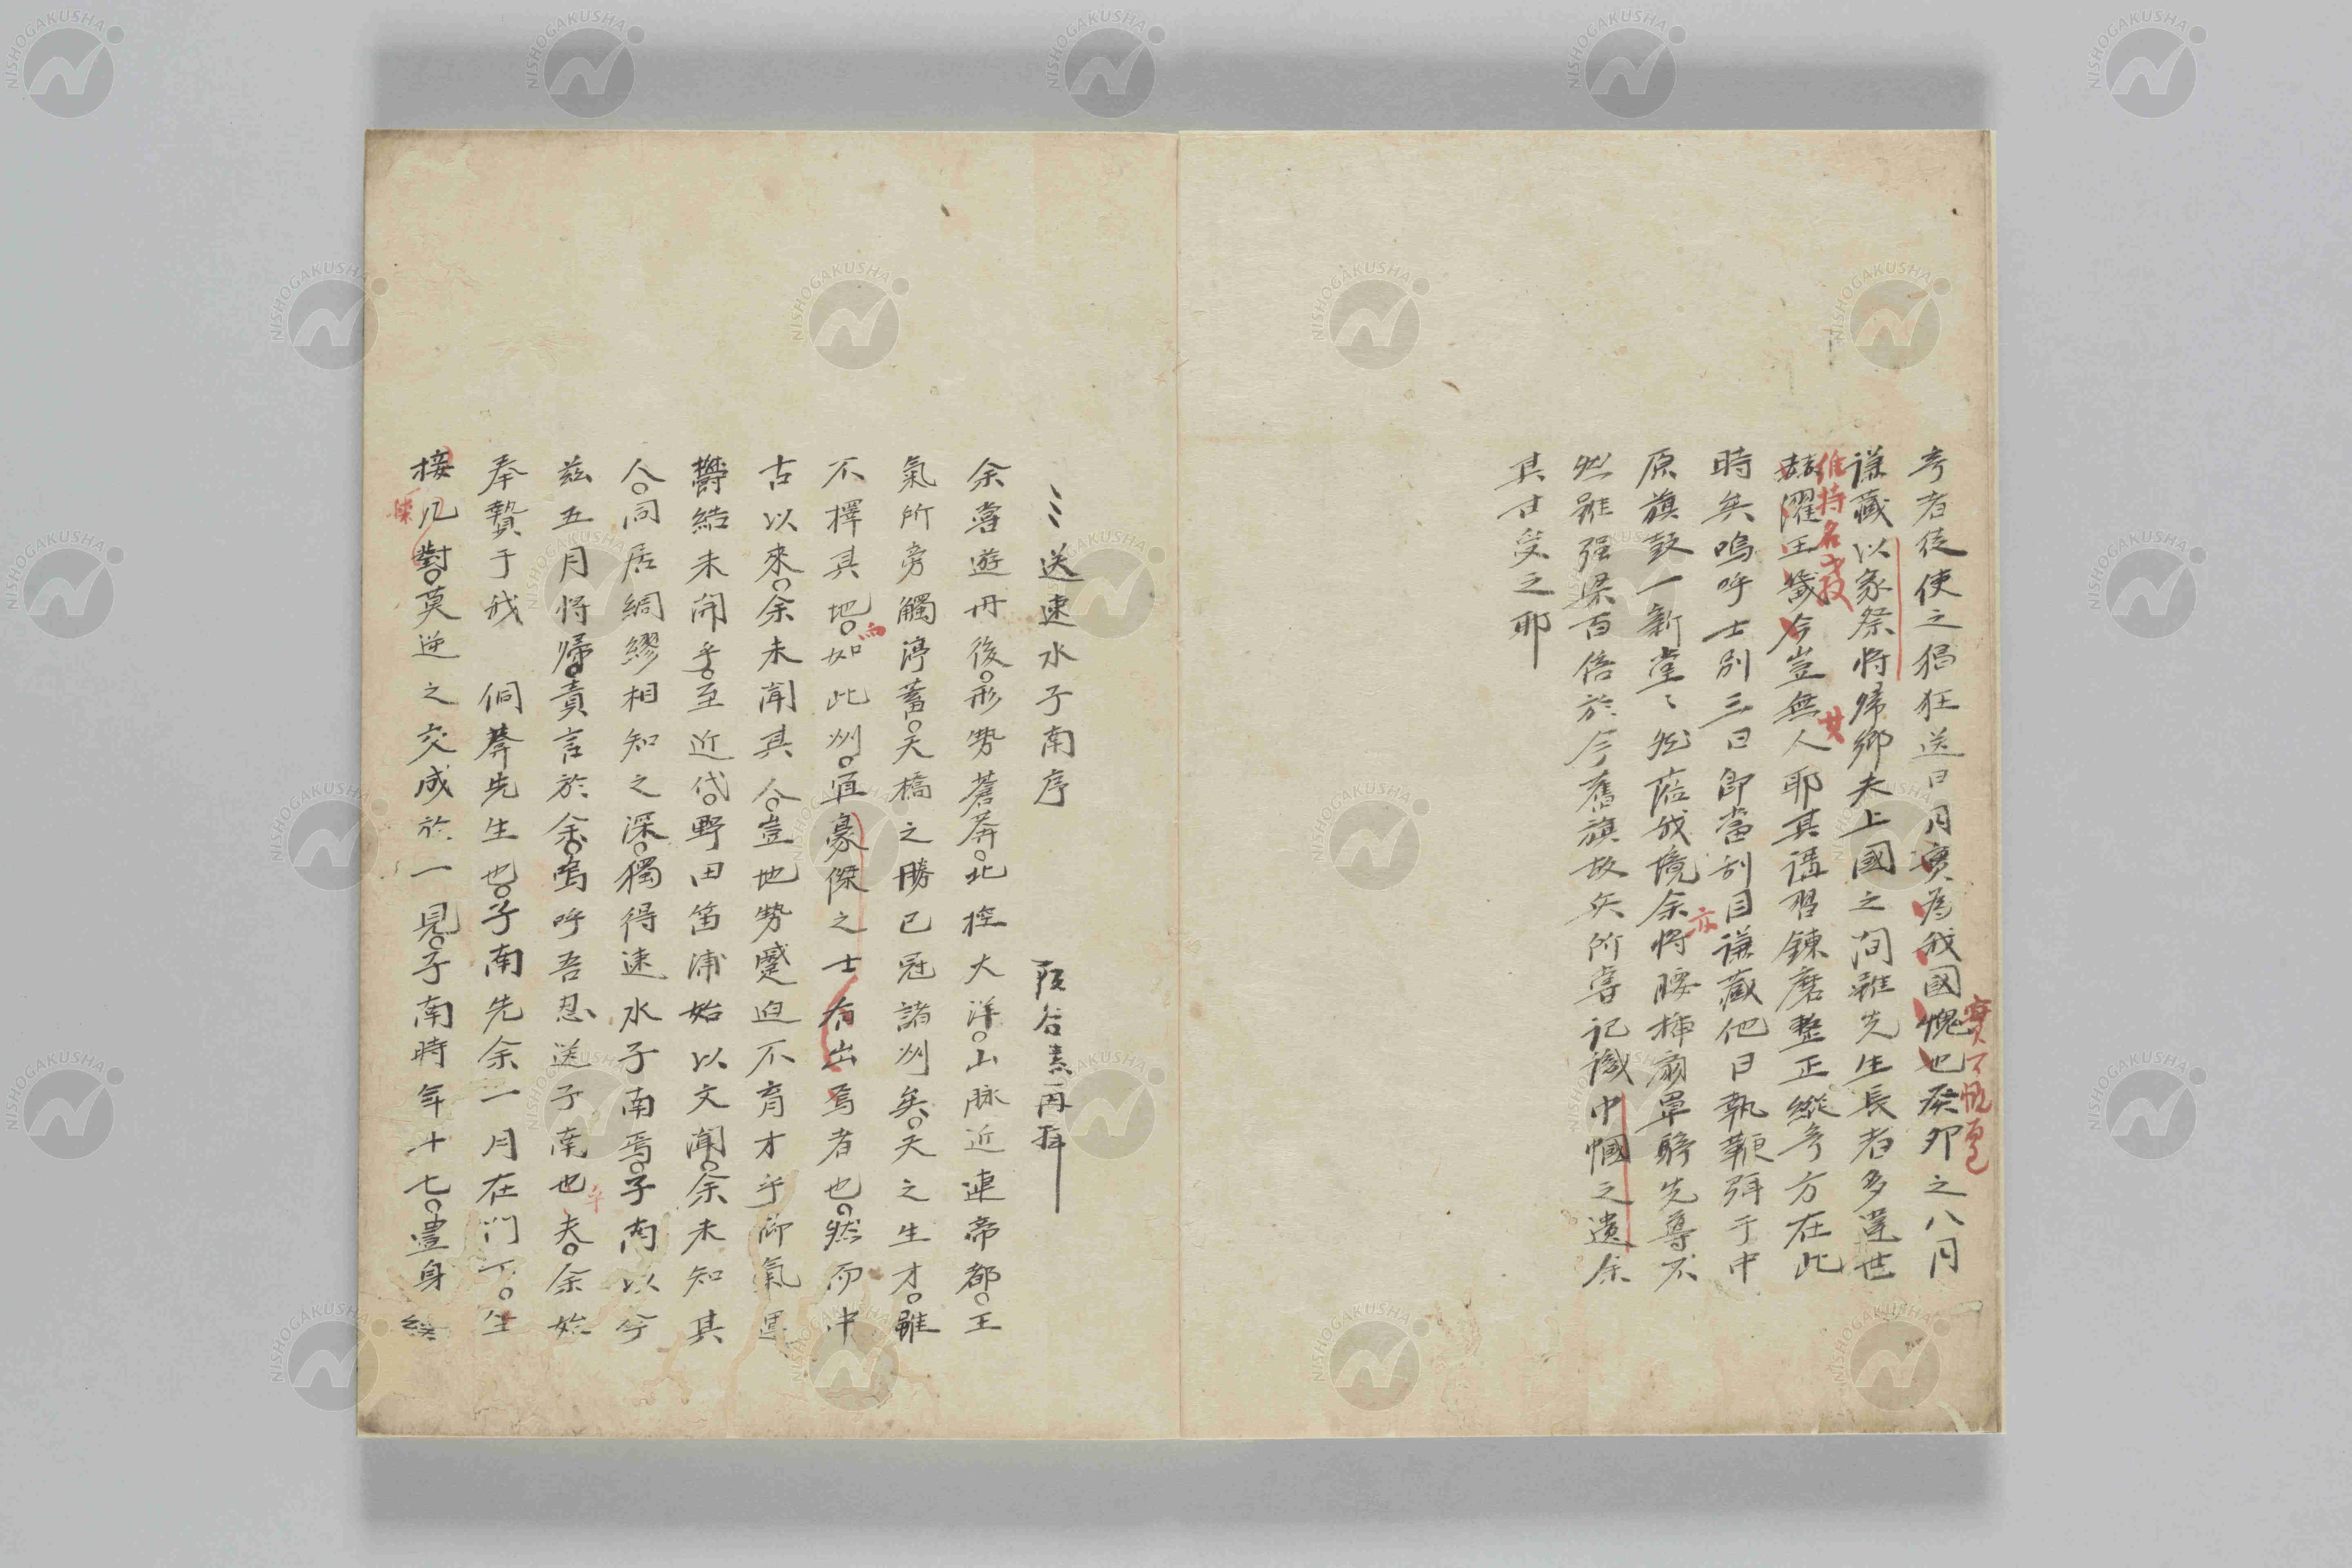 奇者徒使之猖狂送日月實爲我國愧也癸卯之八月
實可愧
謙藏以家祭將歸鄉夫上國之間雖先生長者多逞世
維持名教
赫濯王   今豈無人耶其講習鍊磨整正縱奇方在此
時矣嗚呼士別三日卽當刮目謙藏他日執鞭弭于中
亦
原旗鼓一新堂〻然蒞我境余將腰挿扇單騎先導不
然雖强梁百倍於今舊旗故兵所嘗記識巾幗之遺余
其甘受之耶
送速水子南序
阪谷素再拜
余嘗遊丹後形勢蒼莽北控大洋山脉近連帝都王
氣所旁觸渟蓄天橋之勝已冠諸州矣天之生才雖
不擇其地如此州宜豪傑之士有出焉者也然而中
而
古以來余未聞其人豈地勢蹙迫不育才乎抑氣運
鬱結未開乎至近代野田笛浦始以文聞余未知其
人同居綢繆相知之深獨得速水子南焉子南以今
玆五月將歸責言於余嗚呼吾忍送子南也夫余始
乎
奉贄于我 侗葊先生也子南先余一月在門下坐
接几對莫逆之交成於一見子南時年十七豊身